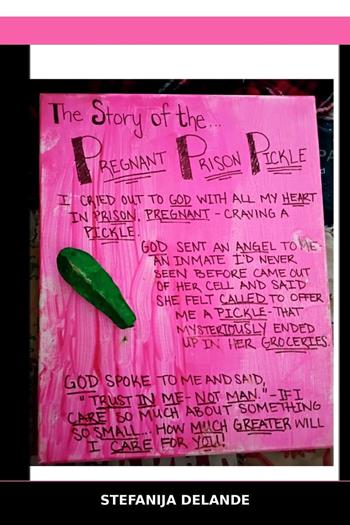 The Story of the...
PREGNANT PRISON PICKLE
I CRIED OUT TO GOD WITH ALL MY HEART
IN PRISON. PREGNANT - CRAVING A
PICKLE.
GOD SENT AN ANGEL TO ME-
AN INMATE I'D NEVER
SEEN BEFORE CAME OUT
OF HER CELL AND SAID
SHE FELT CALLED TO OFFER
ME A PICKLE - THAT
MYSTERIOUSLY ENDED
UP IN HER GROCERIES.
GOD SPOKE TO ME AND SAID,
"TRUST IN ME - NOT MAN." - IF I
CARE SO MUCH ABOUT SOMETHING
SO SMALL... HOW MUCH GREATER WILL
I CARE FOR YOU!
STEFANIJA DELANDE